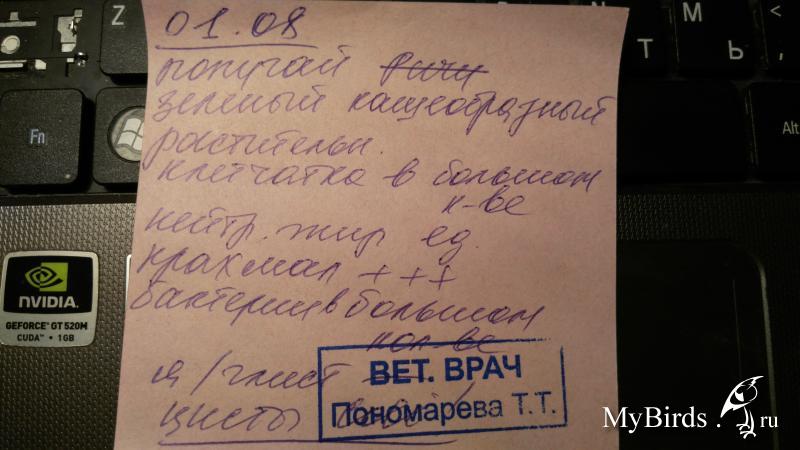 01.08
попугай Ричи
зеленый кашеобразный
растительн.
клетчатка в большом
к-ве
нейтр. жир ед.
крахмал +++
бактерии в большом
кол-ве
я/глист
цисты
ВЕТ. ВРАЧ
Пономарева Т.Т.
Z
M
<
T
Ь
Fn
Alt
NVIDIA
GEFORCE® GT 520M
CUDA™ • 1GB
MyBirds.ru